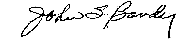 John S. Bandy